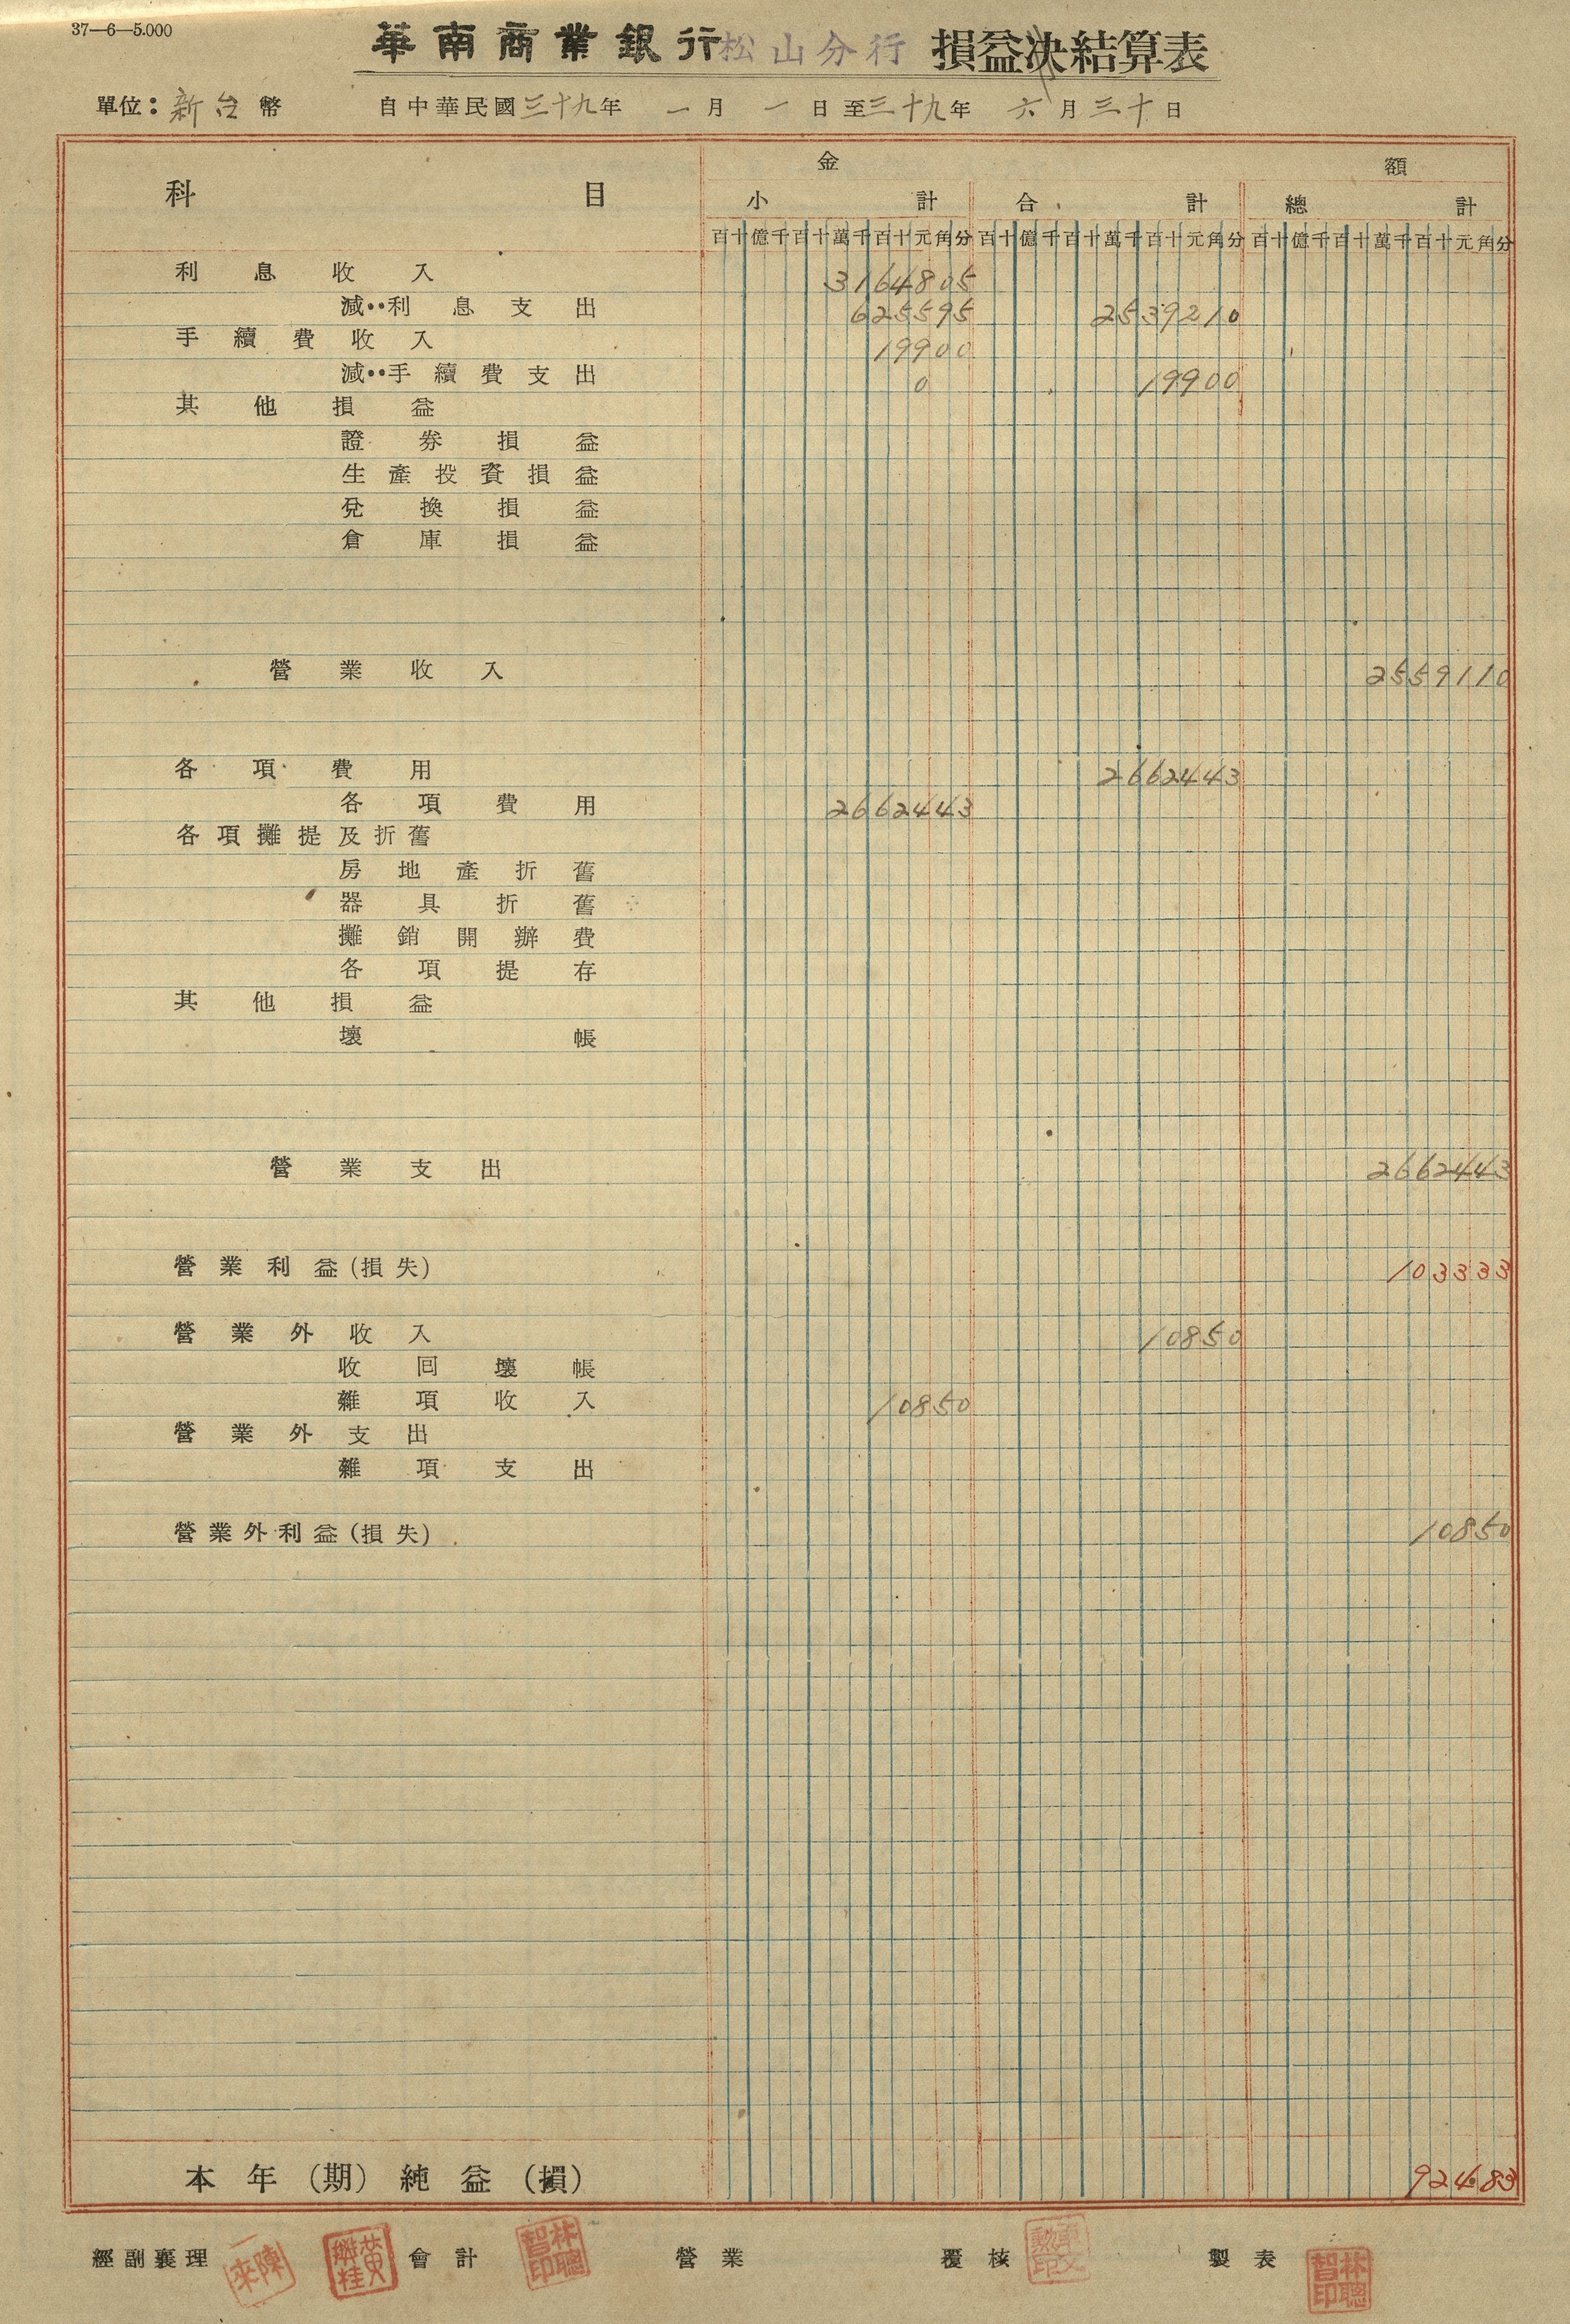 37—6—5.000
華南商業銀行松山分行 損益決結算表
單位：新台幣 自中華民國三十九年一月一日至三十九年六月三十日
科目 金額
小計 合計 總計
百十億千百十萬千百十元角分 百十億千百十萬千百十元角分 百十億千百十萬千百十元角分
利息收入 3164805
減：利息支出 625595 2539210
手續費收入 19900
減：手續費支出 0 19900
其他損益
證券損益
生產投資損益
兌換損益
倉庫損益
營業收入 2559110
各項費用 2662443
各項費用 2662443
各項攤提及折舊
房地產折舊
器具折舊
攤銷開辦費
各項提存
其他損益
壞帳
營業支出 2662443
營業利益(損失) 103333
營業外收入 10850
收回壞帳
雜項收入 10850
營業外支出
雜項支出
營業外利益(損失) 10850
本年(期)純益(損) 92483
經副襄理 陳一來 會計 林聰智印 營業 覆核 製表 林聰智印